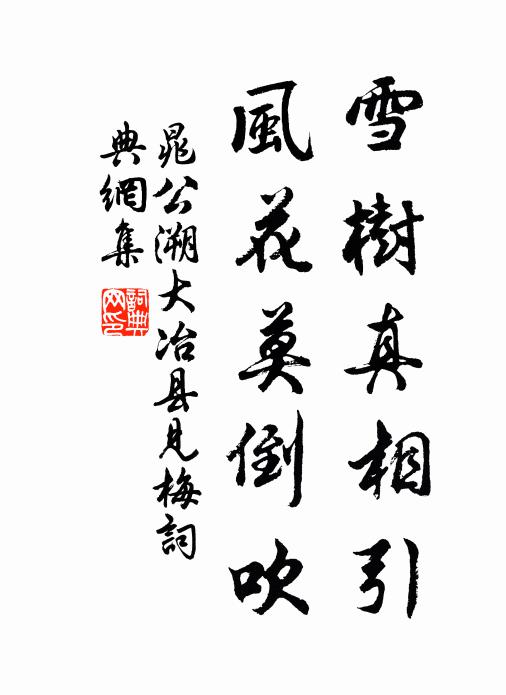 雪樹真相引
風花莫倒吹
晁公溯大冶县見梅詞
典網集
詞典
网印